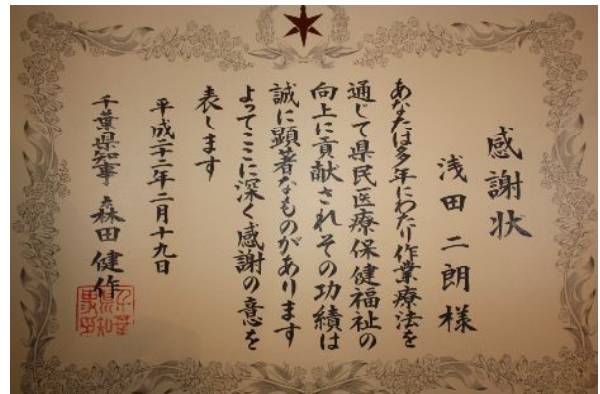 感謝状
浅田二朗様
あなたは多年にわたり作業療法を
通じて県民医療保健福祉の
向上に貢献されその功績は
誠に顕著なものがあります
よってここに深く感謝の意を
表します
平成二十二年二月十九日
千葉県知事 森田健作